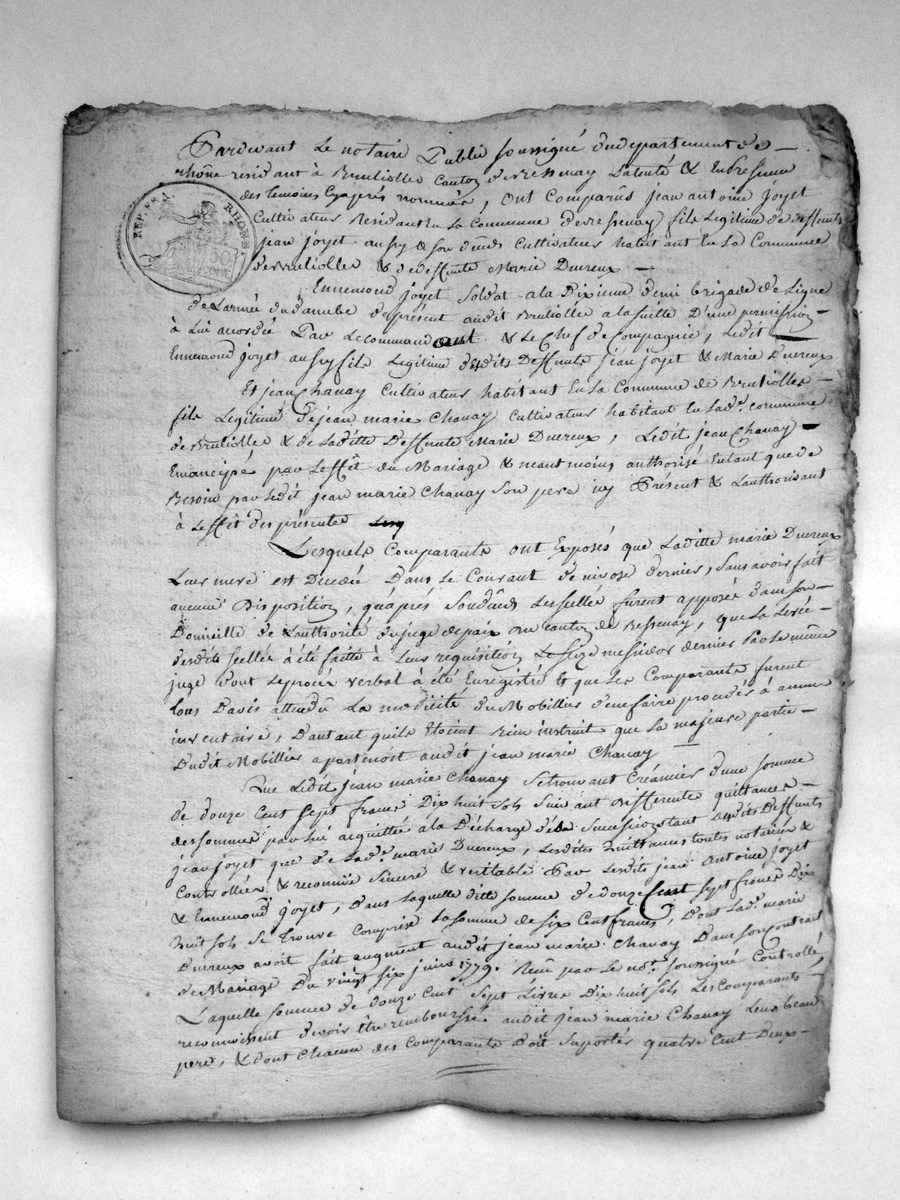 Pardevant Le notaire Public soussigné du département de
rhône residant à Brulliolles Canton de Bessenay La toute & En presence
des temoins Cyaprès nommés, ont Comparûs jean antoine joyet
Cultivateur Residant en La Commune de bessenay fils Legitime de deffunts
jean joyet aussy & son deuds Cultivateur habitant En La Commune
de Brulliolles & de deffunte Marie Ducreux —
Ennemond joyet Soldat a la Dixieme demi brigade de Ligne
de L'armée du danube de présent audit Brulliolle a la suitte D'une permission
à Lui accordée Par Le commandant & Le Chef de Compagnie, Ledit
Ennemond joyet aussy fils Legitime desdits Deffunts jean joyet & Marie Ducreux
Et jean Chanay Cultivateur habitant En La Commune de Brulliolles
fils Legitime de jean marie Chanay Cultivateur habitant En lad.e commune
de Brulliolles & de Laditte Deffunte Marie Ducreux, Ledit jean Chanay
Emancipé par L'effêt du Mariage & neant moins authorisé En tant que de
Besoin par Ledit jean marie Chanay son pere icy Présent & L'authorisant
à L'effêt des présentes
Lesquels Comparants ont Exposés que Laditte marie Ducreux
Leur mere est Décédée Dans Le Courant de nivose dernier, Sans avoir fait
aucune Disposition, qu'après Son décès Les scellés furent apposés dans son
Domicille de L'authorité du juge de paix du canton de Bessenay, que La Levée
desdits scellés à été faitte à Leur requisition Le seize messidor dernier Par Le même
juge dont Le procès verbal à été Enregistré & que Les Comparants furent
tous D'avis attendu La modicité du Mobillier de ne faire proceder à aucun
inventaire, D'autant qu'ils étoient bien instruit que La majeure partie
Dudit Mobillier apartenoit audit jean marie Chanay —
Que Ledit jean marie Chanay Se trouvant Créancier d'une somme
de douze Cent Sept francs Dix huit sols Suivant Differente quittances
des sommes par Lui acquittée à La Décharge de La Succession tant desdits Deffunts
jean joyet que de Lad.e marie Ducreux, Lesdites quittances toutes notariés &
Controllées & reconnues Sincere & veritable Par Lesdits jean Antoine joyet
& Ennemond joyet, Dans Laquelle ditte somme de douze Cent sept francs Dix
huit sols Se trouve comprise La somme de six Cent francs, Dont Lad.e marie
Ducreux avoit fait augment audit jean marie Chanay Dans son Contrat
de Mariage Du vingt six juin 1779. Reçu par Le not.e soussigné Controllé,
Laquelle somme de douze Cent Sept Livres Dix huit sols Les Comparants
reconnoissent devoir être remboursée audit jean marie Chanay Leur beau
pere, & dont Chacun des Comparants Doit Suporter quatre Cent Deux
REP. FRA. RHONE
50
CENT.